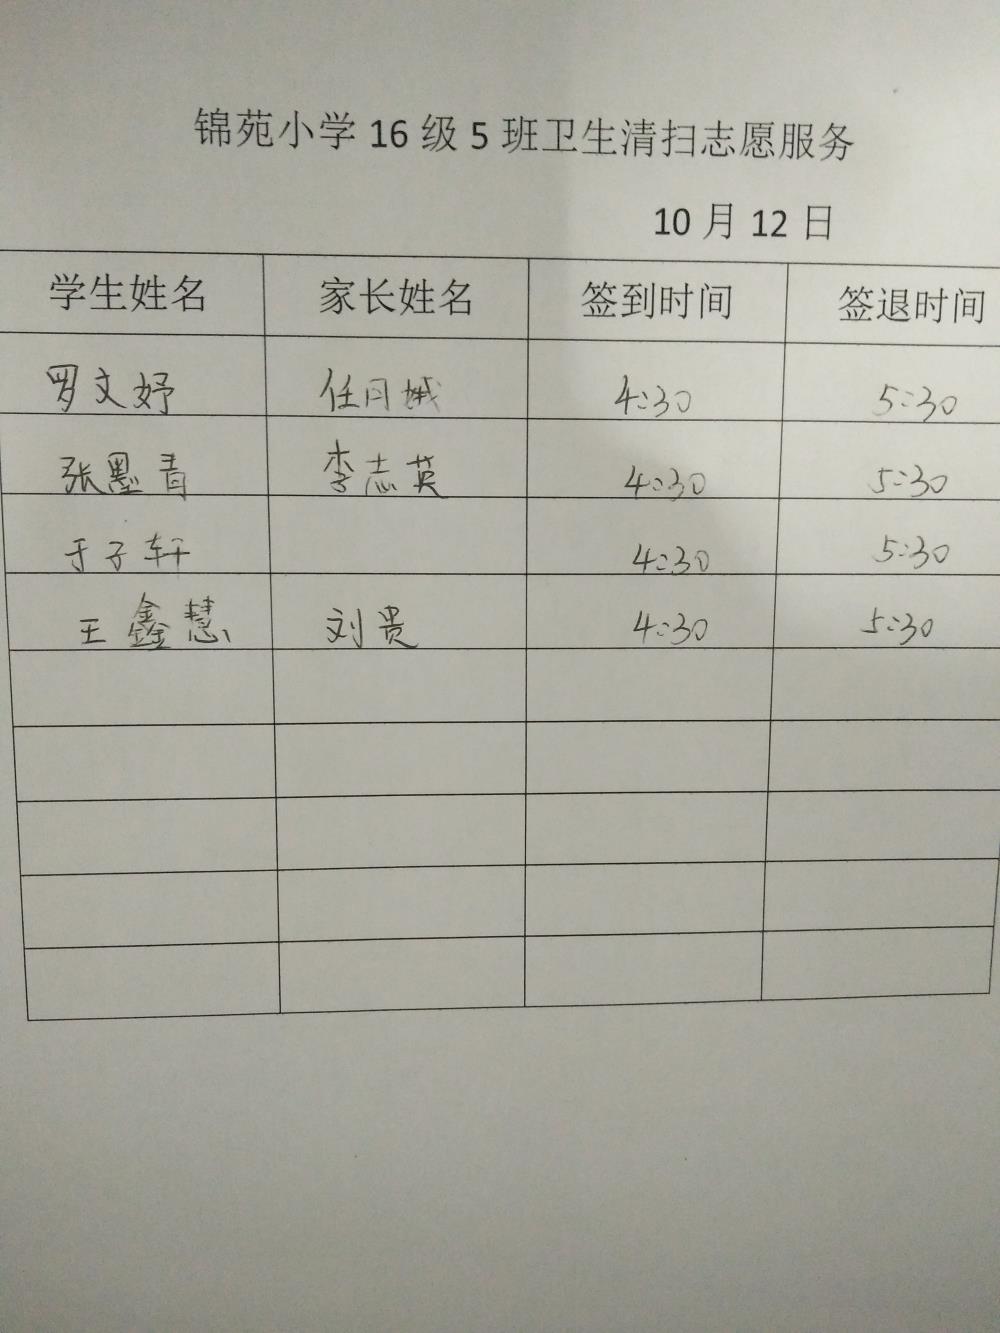 锦苑小学 16 级 5 班卫生清扫志愿服务
10 月 12 日
学生姓名 家长姓名 签到时间 签退时间
罗文妤 任月娥 4:30 5:30
张墨青 李志英 4:30 5:30
于子轩 4:30 5:30
王鑫慧 刘贵 4:30 5:30